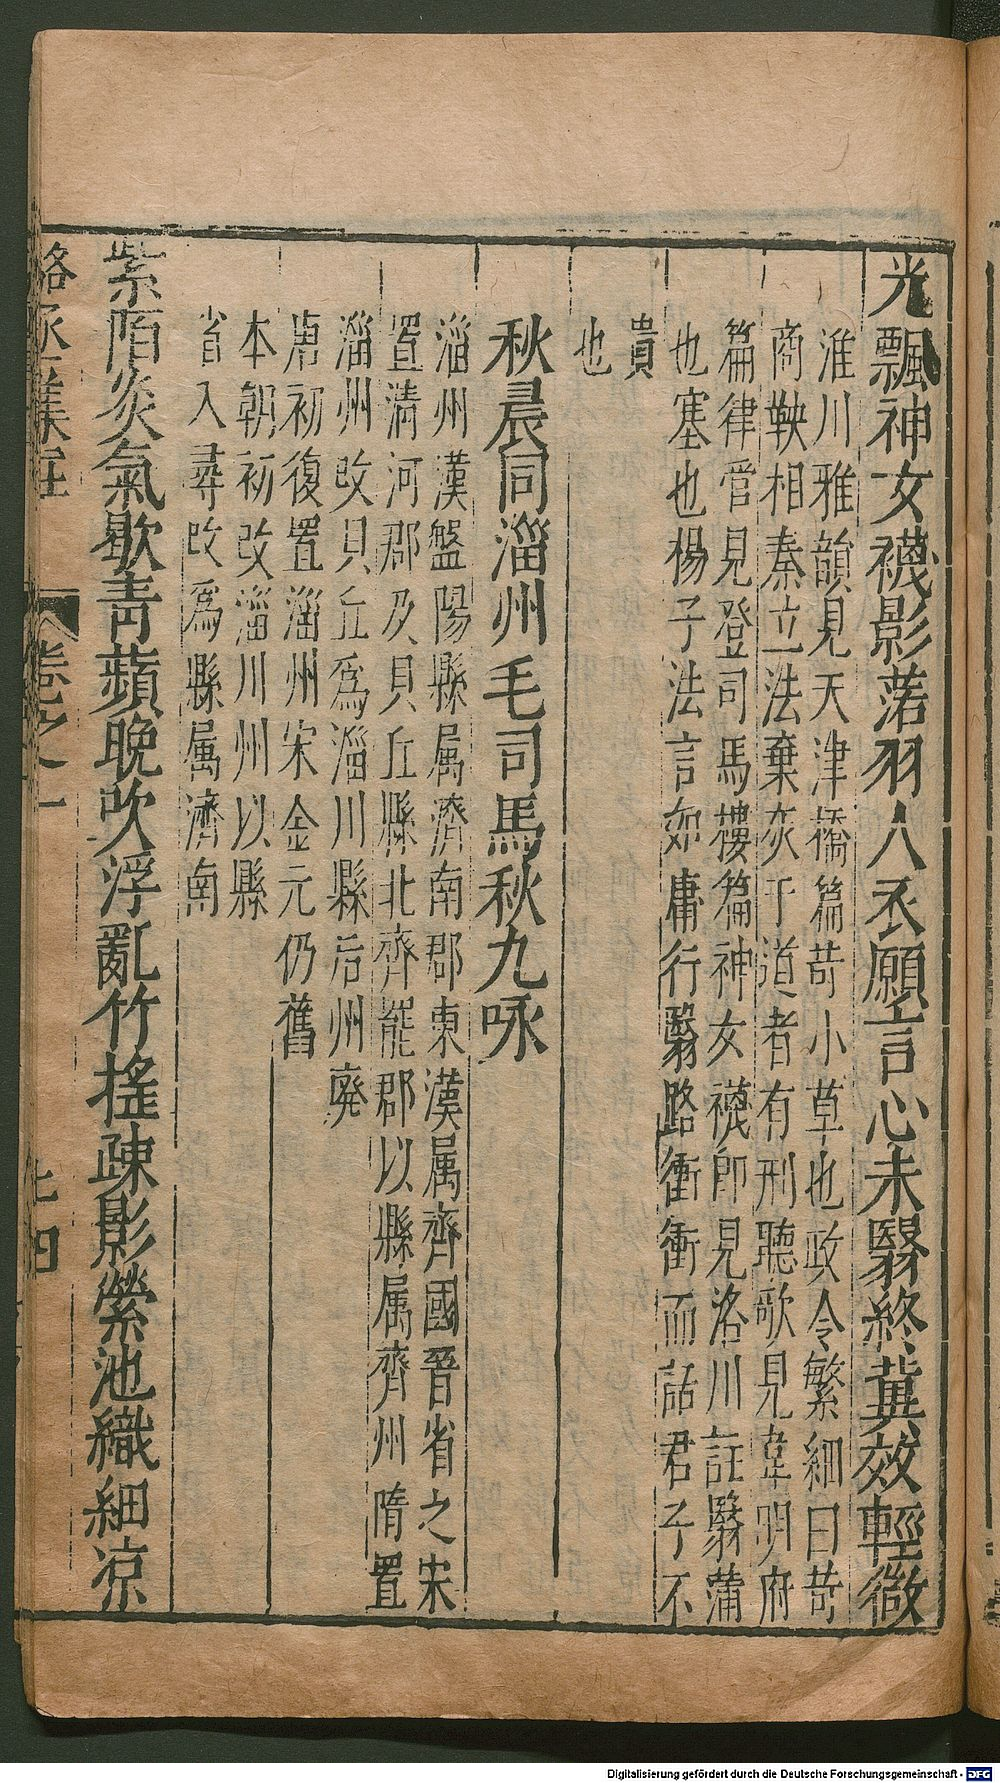 光飄神女襪影落羽人衣願言心未翳終冀效輕微
淮川雅韻見天津橋篇苛小草也政令繁細曰苛
商鞅相秦立法棄灰于道者有刑聽歌見韋明府
篇律管見登司馬樓篇神女襪卽見洛川註翳蒲
也塞也楊子法言如庸行翳路衝衝而話君子不
貴
也
秋晨同淄州毛司馬秋九咏
淄州漢盤陽縣属濟南郡東漢属齊國晉省之宋
置清河郡及貝丘縣北齊罷郡以縣属齊州隋置
淄州改貝丘爲淄川縣后州廢
唐初復置淄州宋金元仍舊
本朝初改淄川州以縣
省入尋改爲縣属濟南
紫陌炎氣歇青蘋晚吹浮亂竹搖疎影縈池織細凉
駱丞集註 卷之一
Digitalisierung gefördert durch die Deutsche Forschungsgemeinschaft - DFG